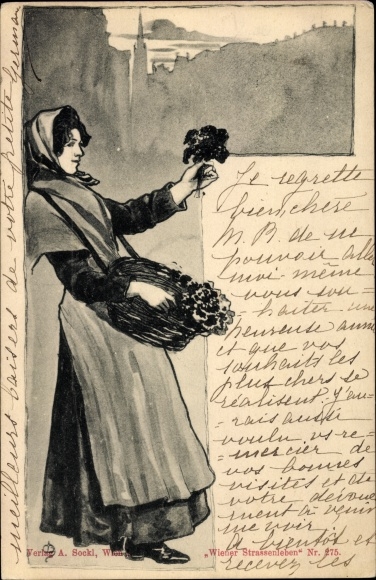 Je regrette
bien, chère
M. B. de ne
pouvoir aller
moi-même
vous sou-
haiter une
heureuse année
et que vos
souhaits les
plus chers se
réalisent. J'au-
rais aussi
voulu vs re-
mercier de
vos bonnes
visites et de
votre dévoue-
ment à venir
me voir.
A bientôt et
recevez les
meilleurs baisers de votre petite
Verlag A. Sockl, Wien
„Wiener Strassenleben" Nr. 275.